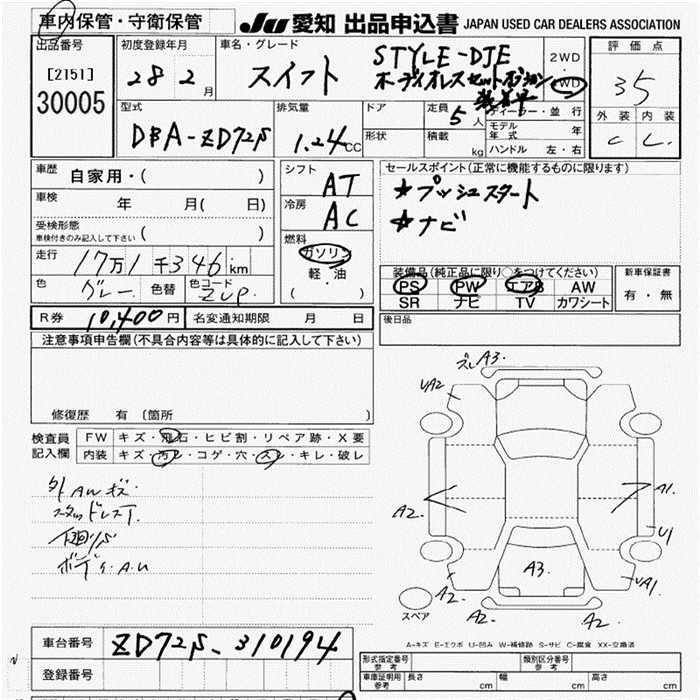 車内保管・守衛保管 JU 愛知 出品申込書 JAPAN USED CAR DEALERS ASSOCIATION
出品番号 初度登録年月 車名・グレード 評価点
[2151] 28年2月 スイフト STYLE-DJE 2WD
30005 4WD 35
ディーラー・並行 外装 内装
型式 排気量 ドア 定員 5人 モデル年式 年 C C
DBA-ZD72S 1.24cc 形状 積載 kg ハンドル 左・右
車歴 自家用・( ) シフト AT セールスポイント(正常に機能するものに限ります)
車検 年 月( 日) 冷房 AC ★プッシュスタート
受検形態 ★ナビ
車検付きのみ記入して下さい ( )
走行 17万1千346km 燃料 ガソリン
軽・油
( )
色 グレー 色替 色コード ZUP 装備品(純正品に限り○をつけてください) 新車保証書
PS PW エアB AW 有・無
SR ナビ TV カワシート
R券 10,400円 名変通知期限 月 日 後日品
注意事項申告欄(不具合内容等は具体的に記入して下さい)
修復歴 有 〔箇所 〕
検査員 FW キズ・飛石・ヒビ割・リペア跡・X要
記入欄 内装 キズ・汚レ・コゲ・穴・スレ・キレ・破レ
外AWキズ
スタッドレスT
下廻りS
ボディG.A.U
ズレA3.
UA2
A2
A1.
U1
A3
UA1.
A2
A2
A2
スペア
A-キズ E-エクボ U-凹み W-補修跡 S-サビ C-腐食 XX-交換済
車台番号 ZD72S-310194 形式指定番号 参考 類別区分番号 参考
登録番号 車庫証明用 参考 長さ cm 幅 cm 高さ cm